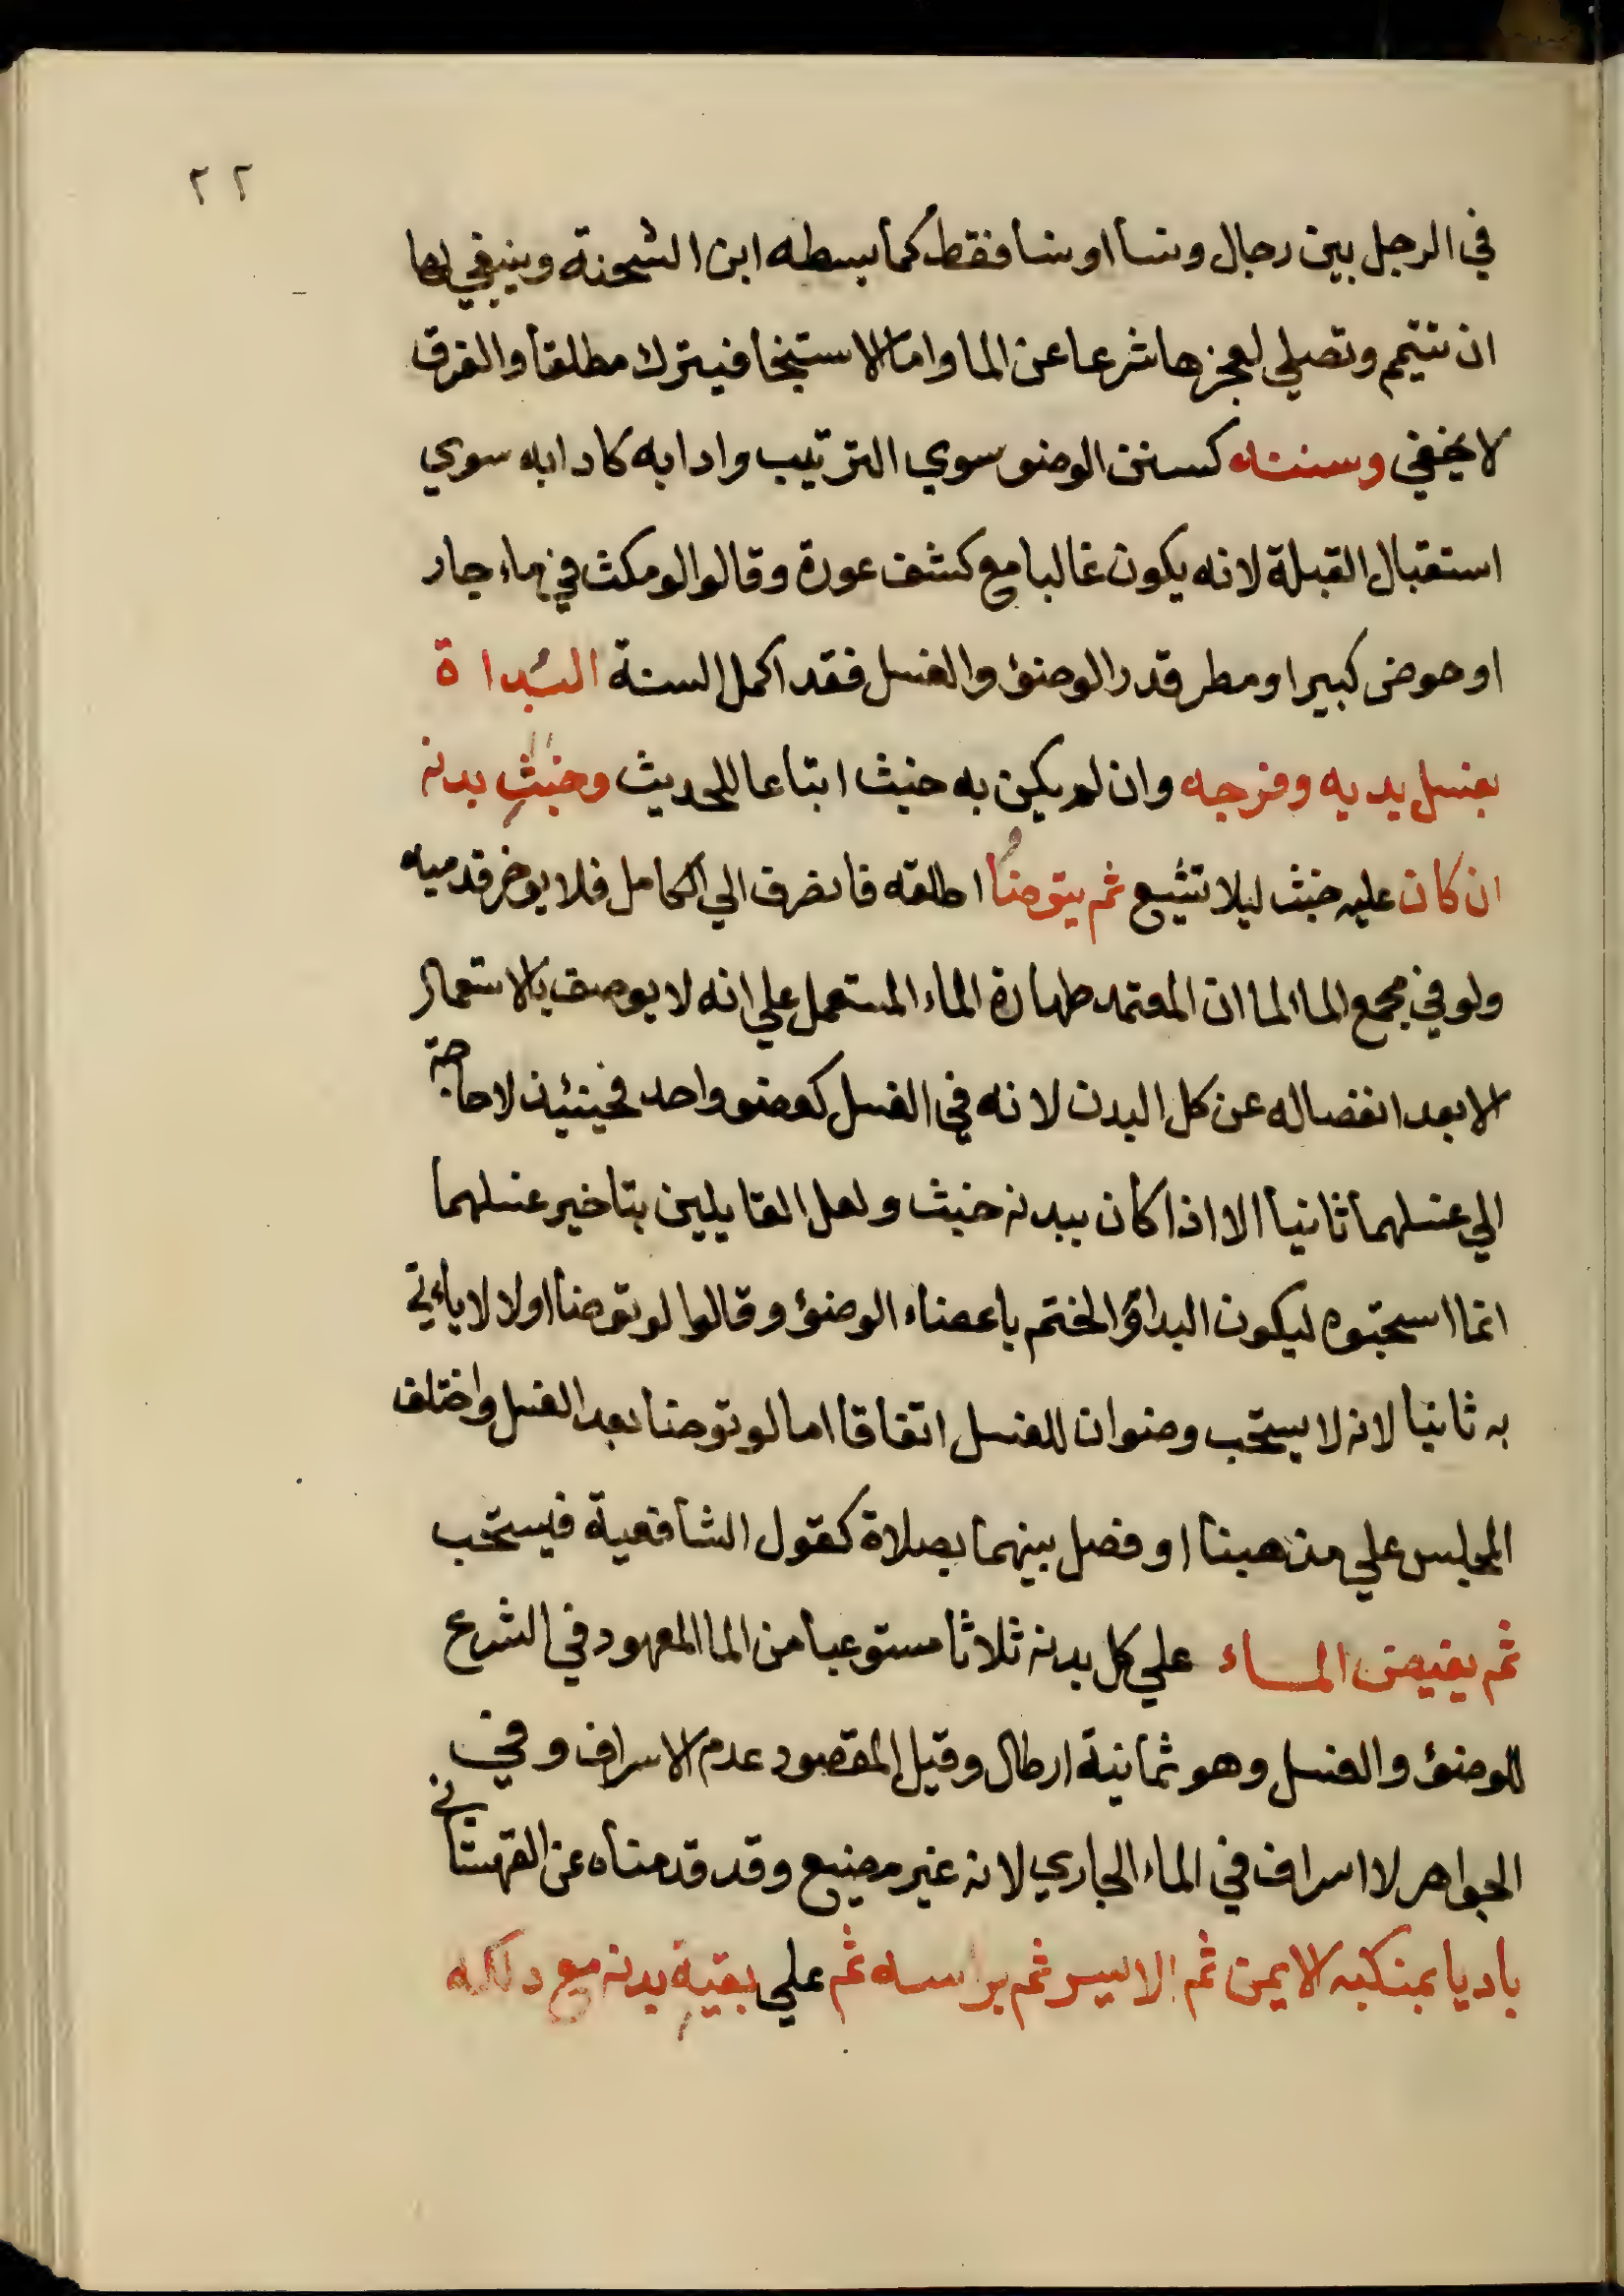 ٢٢
في الرجل بين رجال ونسا او نسا فقط كما بسطه ابن الشحنة وينبغي لها
ان تتيمم وتصلي لعجزها شرعا عن الما واما الاستنجا فيترك مطلقا والفرق
لا يخفي وسننه كسنن الوضو سوي الترتيب وادابه كادابه سوي
استقبال القبلة لانه يكون غالبا مع كشف عورة وقالوا لو مكث في ماء جار
او حوض كبير او مطر قدر الوضؤ والغسل فقد اكمل السنة البُداة
بغسل يديه وفرجه وان لم يكن به خبث اتباعا للحديث وخبثِ بدنه
ان كان عليه خبث ليلا تشيع ثم يتوضأُ اطلقه فانصرف الي الكامل فلا يوخر قدميه
ولو في مجمع الما لما ان المعتمد طهارة الماء المستعمل علي انه لا يوصف بالاستعمال
الا بعد انفصاله عن كل البدن لانه في الغسل كعضو واحد فحينئذ لا حاجة
الي غسلهما ثانيا الا اذا كان ببدنه خبث ولعل القايلين بتاخير غسلهما
انما استحبوه ليكون البداؤ والختم باعضاء الوضؤ وقالوا لو توضا اولا لا ياءتي
به ثانيا لانه لا يستحب وضوان للغسل اتفاقا اما لو توضا بعد الغسل واختلف
المجلس علي مذهبنا او فصل بينهما بصلاة كقول الشافعية فيستحب
ثم يفيض الماء علي كل بدنه ثلاثا مستوعبا من الما المعهود في الشرع
للوضؤ والغسل وهو ثمانية ارطال وقيل المقصود عدم الاسراف وفي
الجواهر لا اسراف في الماء الجاري لانه غير مضيع وقد قدمناه عن القهستاني
باديا بمنكبه الايمن ثم الايسر ثم براسه ثم علي بقيةِ بدنه مع دلكه